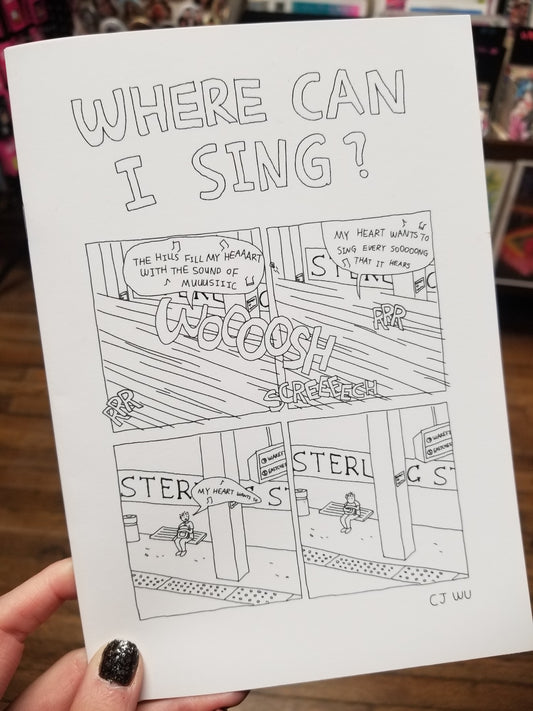 WHERE CAN
I SING?
THE HILLS FILL MY HEAAART
WITH THE SOUND OF
MUUUSIIIC
MY HEART WANTS TO
SING EVERY SOOOOONG
THAT IT HEARS
STERL
WOOOOSH
RRR
SCREEEECH
RRR
STER
MY HEART WANTS TO
ST
STERL G ST
CJ WU